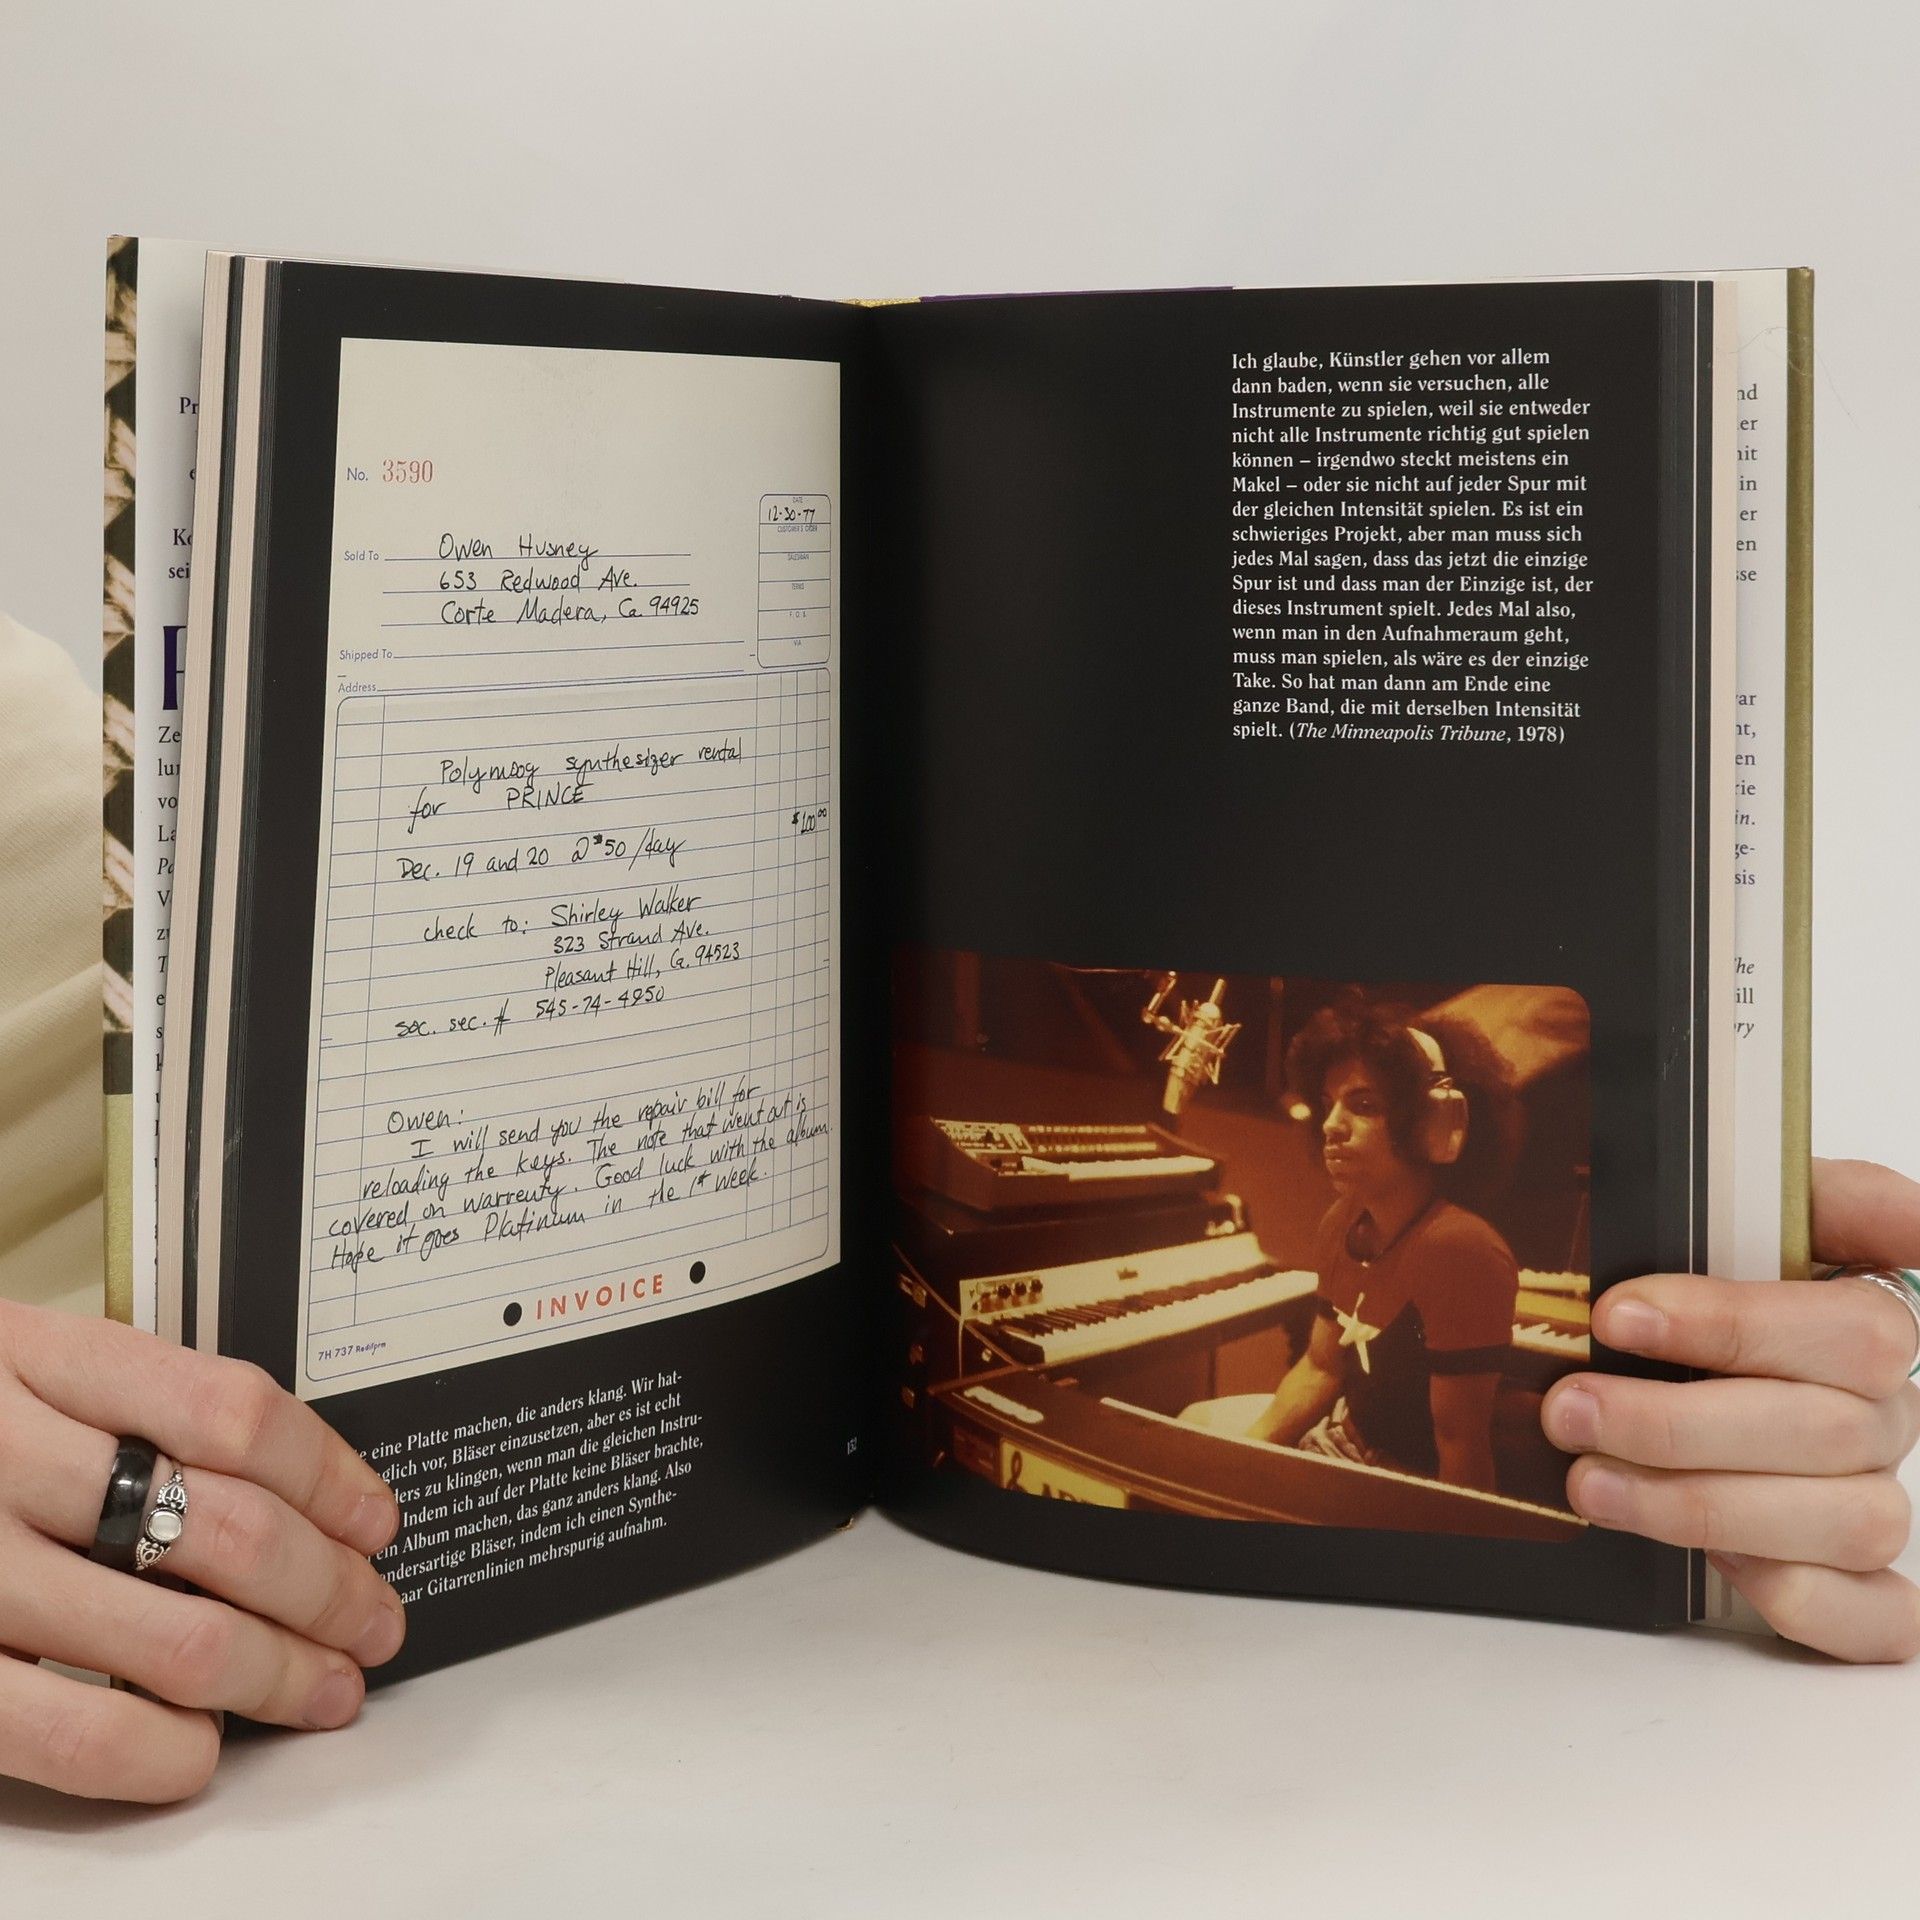 No. 3590
DATE
12-30-77
CUSTOMER'S ORDER
SALESMAN
TERMS
F. O. B.
VIA
Sold To Owen Husney
653 Redwood Ave.
Corte Madera, Ca. 94925
Shipped To
Address
Polymoog synthesizer rental
for PRINCE
$100.00
Dec. 19 and 20 @ $50/day
check to: Shirley Walker
323 Strand Ave.
Pleasant Hill, Ca. 94523
soc. sec. # 545-74-4950
Owen:
I will send you the repair bill for
reloading the keys. The note that went out is
covered on warrenty. Good luck with the album.
Hope it goes Platinum in the 1st week.
INVOICE
7H 737 Rediform
eine Platte machen, die anders klang. Wir hat-
glich vor, Bläser einzusetzen, aber es ist echt
ders zu klingen, wenn man die gleichen Instru-
Indem ich auf der Platte keine Bläser brachte,
ein Album machen, das ganz anders klang. Also
andersartige Bläser, indem ich einen Synthe-
aar Gitarrenlinien mehrspurig aufnahm.
Ich glaube, Künstler gehen vor allem
dann baden, wenn sie versuchen, alle
Instrumente zu spielen, weil sie entweder
nicht alle Instrumente richtig gut spielen
können – irgendwo steckt meistens ein
Makel – oder sie nicht auf jeder Spur mit
der gleichen Intensität spielen. Es ist ein
schwieriges Projekt, aber man muss sich
jedes Mal sagen, dass das jetzt die einzige
Spur ist und dass man der Einzige ist, der
dieses Instrument spielt. Jedes Mal also,
wenn man in den Aufnahmeraum geht,
muss man spielen, als wäre es der einzige
Take. So hat man dann am Ende eine
ganze Band, die mit derselben Intensität
spielt. (The Minneapolis Tribune, 1978)